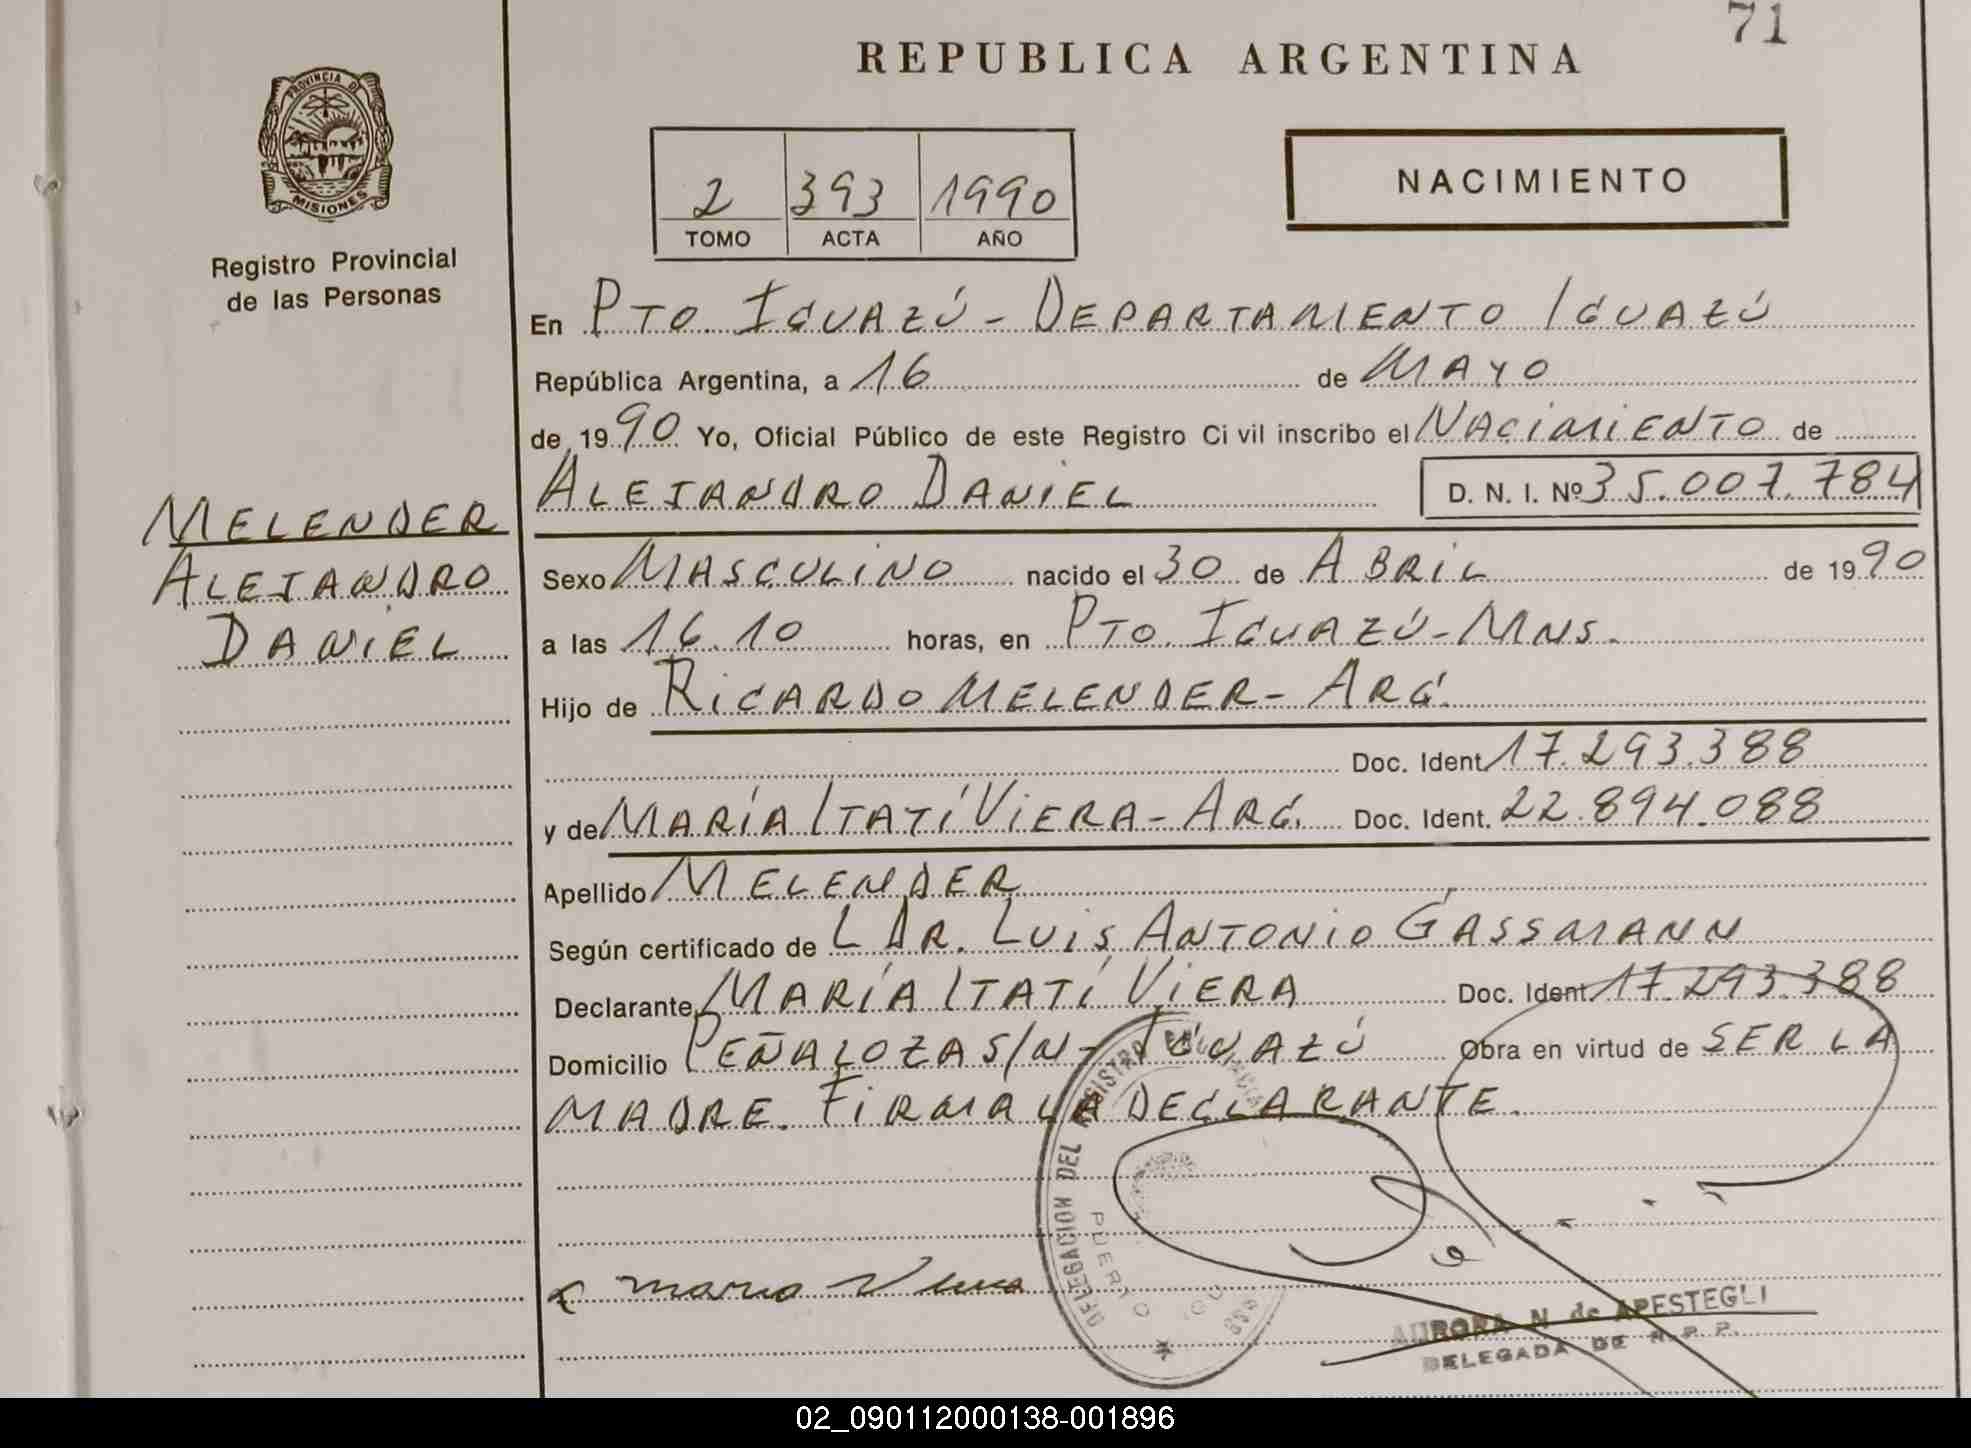 71
REPUBLICA ARGENTINA
PROVINCIA DE
MISIONES
Registro Provincial
de las Personas
2 393 1990
TOMO ACTA AÑO
NACIMIENTO
En PTO. IGUAZÚ - DEPARTAMENTO IGUAZÚ
República Argentina, a 16 de MAYO
de 1990 Yo, Oficial Público de este Registro Civil inscribo el NACIMIENTO de
ALEJANDRO DANIEL D. N. I. Nº 35.007.784
MELENDER
ALEJANDRO
DANIEL
Sexo MASCULINO nacido el 30 de ABRIL de 1990
a las 16.10 horas, en PTO. IGUAZÚ - MNS.
Hijo de RICARDO MELENDER - ARG.
Doc. Ident. 17.293.388
y de MARÍA ITATÍ VIERA - ARG. Doc. Ident. 22.894.088
Apellido MELENDER
Según certificado de L DR. LUIS ANTONIO GASSMANN
Declarante MARÍA ITATÍ VIERA Doc. Ident. 17.293.388
Domicilio PEÑALOZA S/N - IGUAZÚ Obra en virtud de SER LA
MADRE. FIRMA LA DECLARANTE.
DELEGACION DEL REGISTRO
PUERTO
x maria Viera
AURORA N. de APESTEGLI
DELEGADA DE R. P. P.
02_090112000138-001896